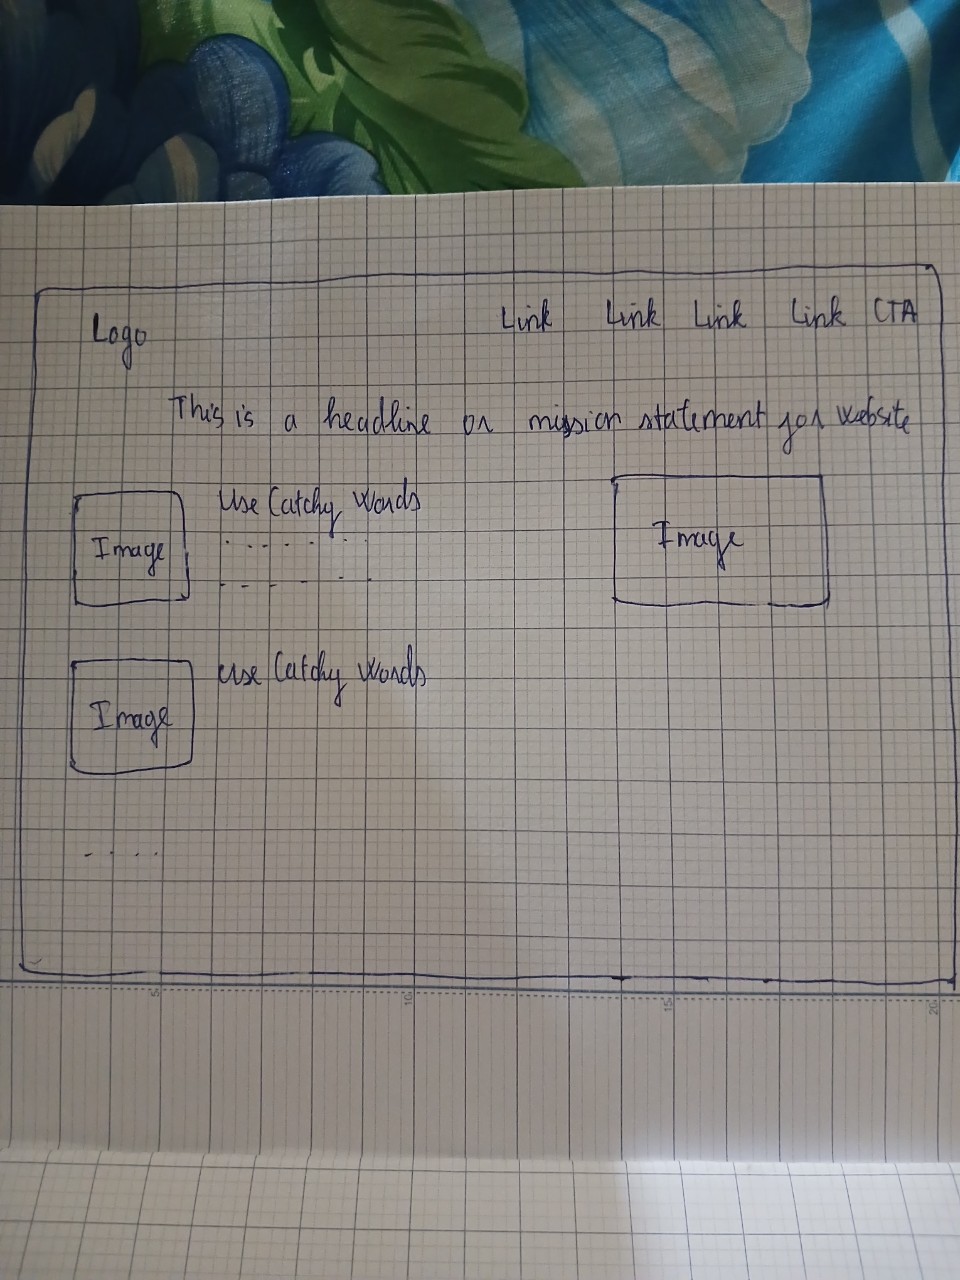 Logo Link Link Link Link CTA
This is a headline or mission statement for website
Image
Use Catchy Words
Image
Image
Use Catchy Words
5
10
15
20